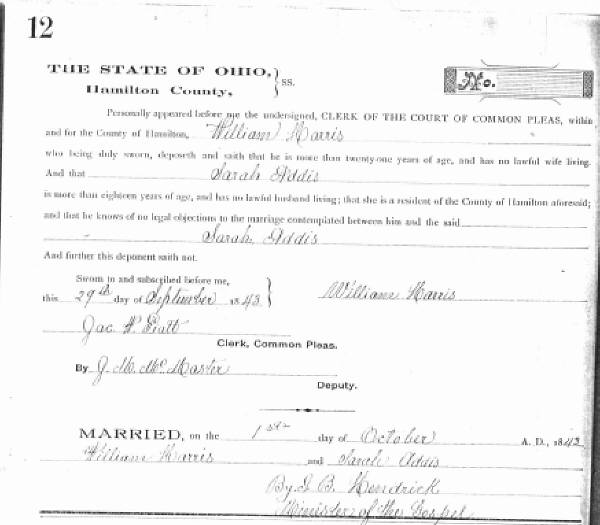 12
THE STATE OF OHIO,
Hamilton County, } SS.
No.
Personally appeared before me the undersigned, CLERK OF THE COURT OF COMMON PLEAS, within
and for the County of Hamilton, William Harris
who being duly sworn, deposeth and saith that he is more than twenty-one years of age, and has no lawful wife living.
And that Sarah Addis
is more than eighteen years of age, and has no lawful husband living; that she is a resident of the County of Hamilton aforesaid;
and that he knows of no legal objections to the marriage contemplated between him and the said
Sarah Addis
And further this deponent saith not.
Sworn to and subscribed before me,
this 29th day of September 1843. } William Harris
Jac W. Piatt
Clerk, Common Pleas.
By J. M. McMaster
Deputy.
MARRIED, on the 1st day of October A. D., 1843
William Harris and Sarah Addis
By J. B. Kendrick
Minister of the Gospel